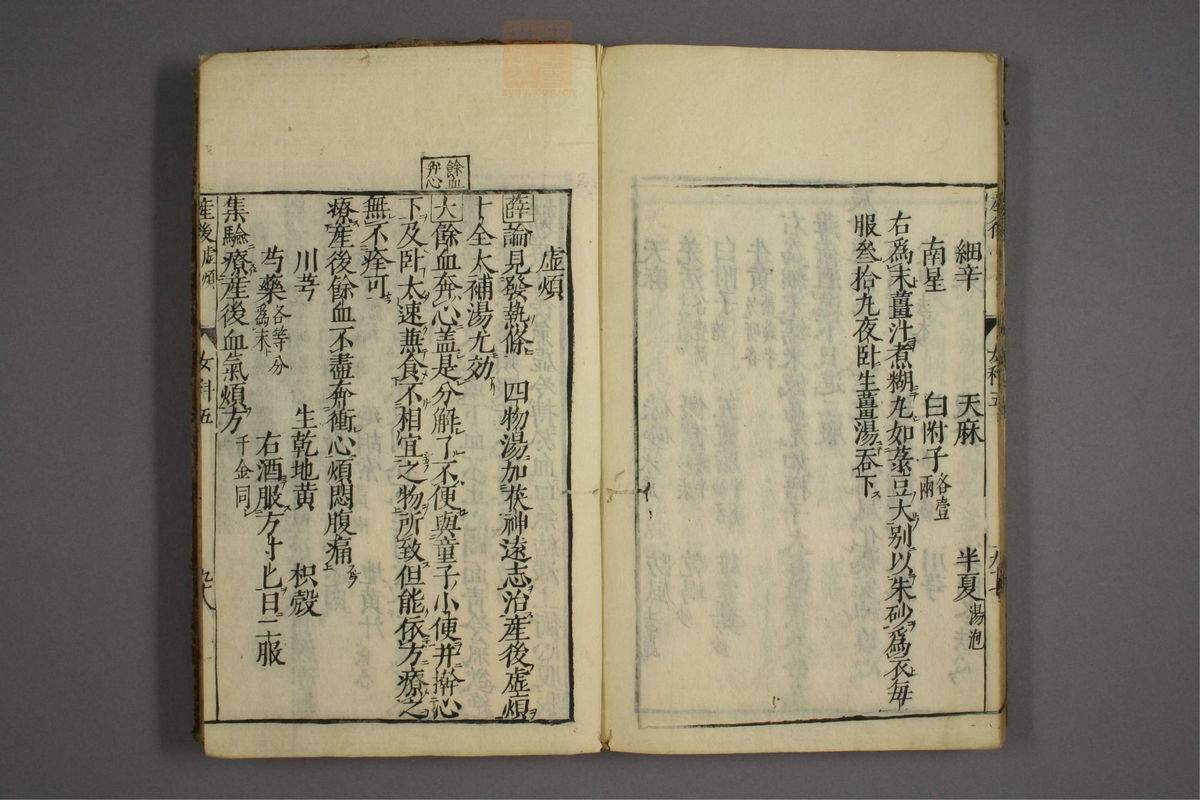 細辛 天麻 半夏湯泡
南星 白附子各壹兩
右爲末薑汁煮糊丸如菉豆大别以朱砂爲衣每
服叁拾九夜卧生薑湯吞下
餘血
奔心
虛煩
薛論見發熱條 四物湯加茯神遠志治產後虛煩
十全大補湯尤効
大餘血奔心盖是分解了不便與童子小便并擀心
下及卧太速燕食不相宜之物所致但能依方療之
無不痊可
療產後餘血不盡奔衝心煩悶腹痛
川芎 生乾地黄 枳殼
芍藥各等分爲末 右酒服方寸匕日二服
集驗療產後血氣煩方千金同
產後虛煩 女科五 九十八